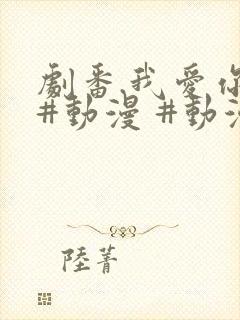 劇番我愛你
#動漫 #動漫
陸菁